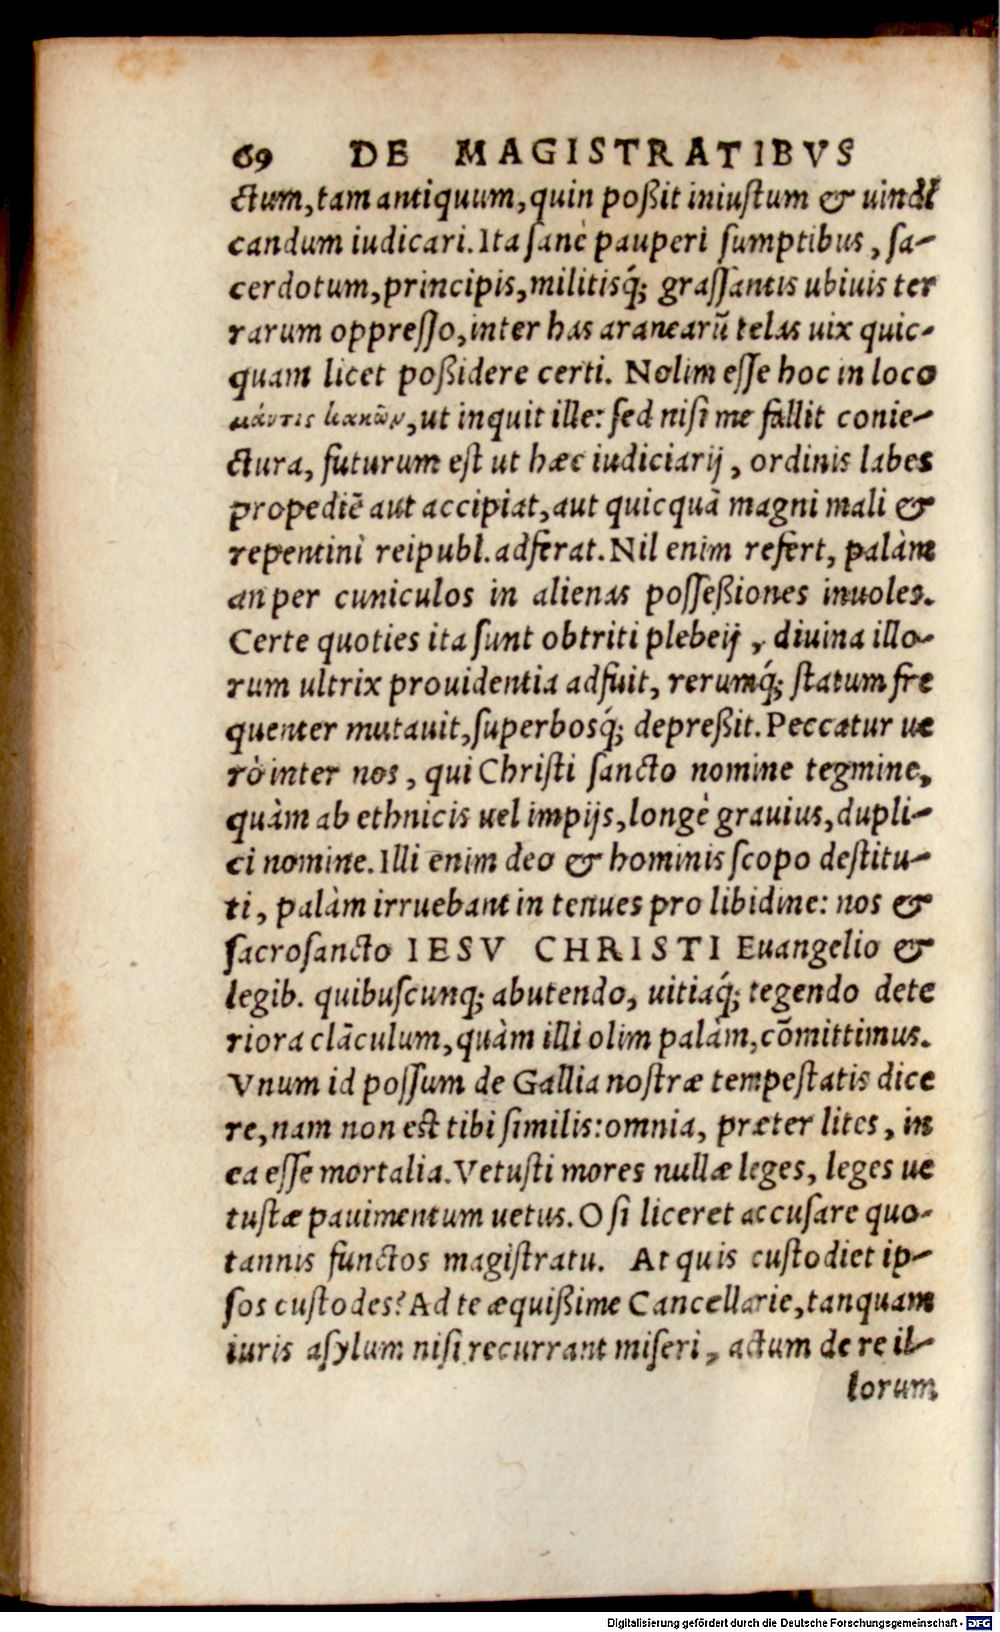 69 DE MAGISTRATIBVS
ctum, tam antiquum, quin poßit iniustum & uindi
candum iudicari. Ita sanè pauperi sumptibus, sa-
cerdotum, principis, militisq́; grassantis ubiuis ter
rarum oppresso, inter has aranearū telas uix quic-
quam licet poßidere certi. Nolim esse hoc in loco
μάντις κακῶν, ut inquit ille: sed nisi me fallit conie-
ctura, futurum est ut hæc iudiciarij, ordinis labes
propediē aut accipiat, aut quicquā magni mali &
repentini reipubl. adferat. Nil enim refert, palàm
an per cuniculos in alienas posseßiones inuoles.
Certe quoties ita sunt obtriti plebeij, diuina illo-
rum ultrix prouidentia adfuit, rerumq́; statum fre
quenter mutauit, superbosq́; depreßit. Peccatur ue
rò inter nos, qui Christi sancto nomine tegmine,
quàm ab ethnicis uel impijs, longè grauius, dupli-
ci nomine. Illi enim deo & hominis scopo destitu-
ti, palàm irruebant in tenues pro libidine: nos &
sacrosancto IESV CHRISTI Euangelio &
legib. quibuscunq; abutendo, uitiaq́; tegendo dete
riora clāculum, quàm illi olim palàm, cōmittimus.
Vnum id possum de Gallia nostræ tempestatis dice
re, nam non est tibi similis: omnia, præter lites, in
ea esse mortalia. Vetusti mores nullæ leges, leges ue
tustæ pauimentum uetus. O si liceret accusare quo-
tannis functos magistratu. At quis custodiet ip-
sos custodes? Ad te æquißime Cancellarie, tanquam
iuris asylum nisi recurrant miseri, actum de re il-
lorum
Digitalisierung gefördert durch die Deutsche Forschungsgemeinschaft - DFG